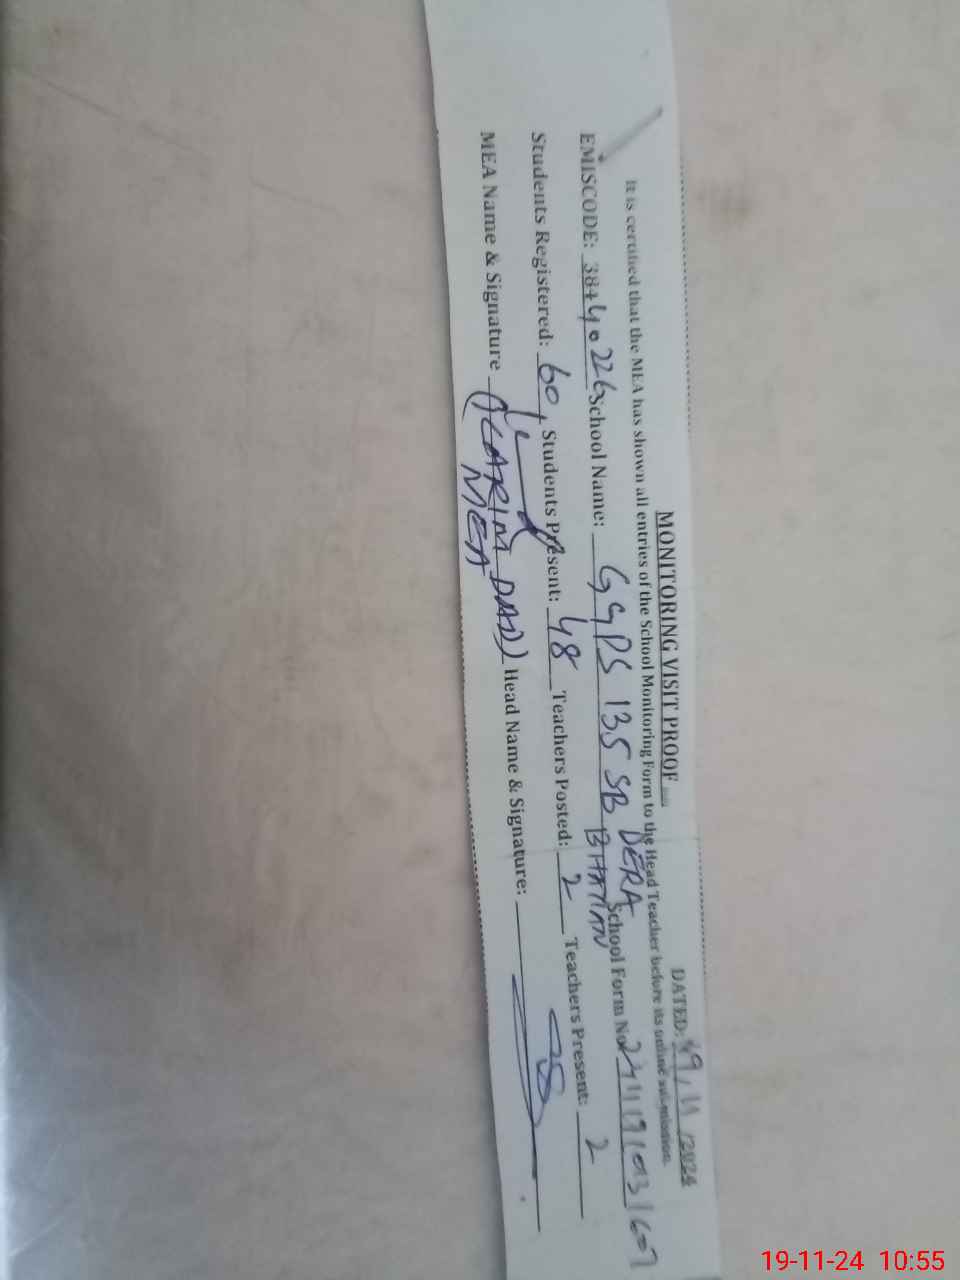 MONITORING VISIT PROOF
DATED: 19/11/2024
It is certified that the MEA has shown all entries of the School Monitoring Form to the Head Teacher before its online submission.
EMISCODE: 38440226 School Name: GGPS 135 SB DERA BHATIAN School Form No
Students Registered: 60, Students Present: 48 Teachers Posted: 2 Teachers Present: 2
MEA Name & Signature (KARIM DAD) Head Name & Signature:
MEA
19-11-24 10:55